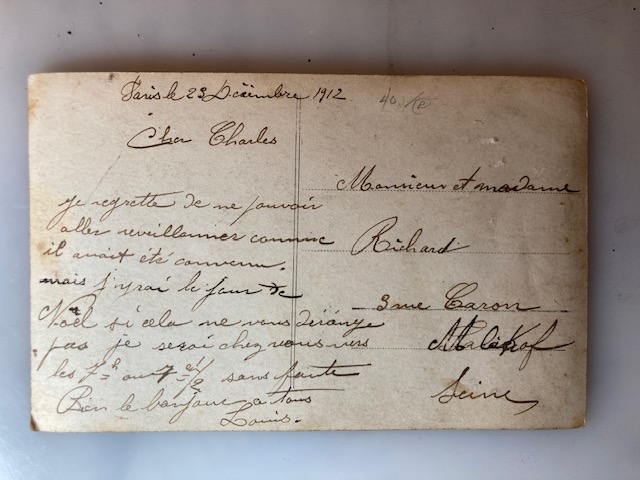 Paris le 23 Décembre 1912
Cher Charles
je regrette de ne pouvoir
aller reveillonner comme
il avait été convenu.
mais j'yrai le jour de
Noël si cela ne vous dérange
pas je serai chez vous vers
les 7 h ou 7 h 1/2 sans faute
Bien le bonjour a tous
Louis.
Monsieur et madame
Richard
3 rue Caron
Malakof
Seine